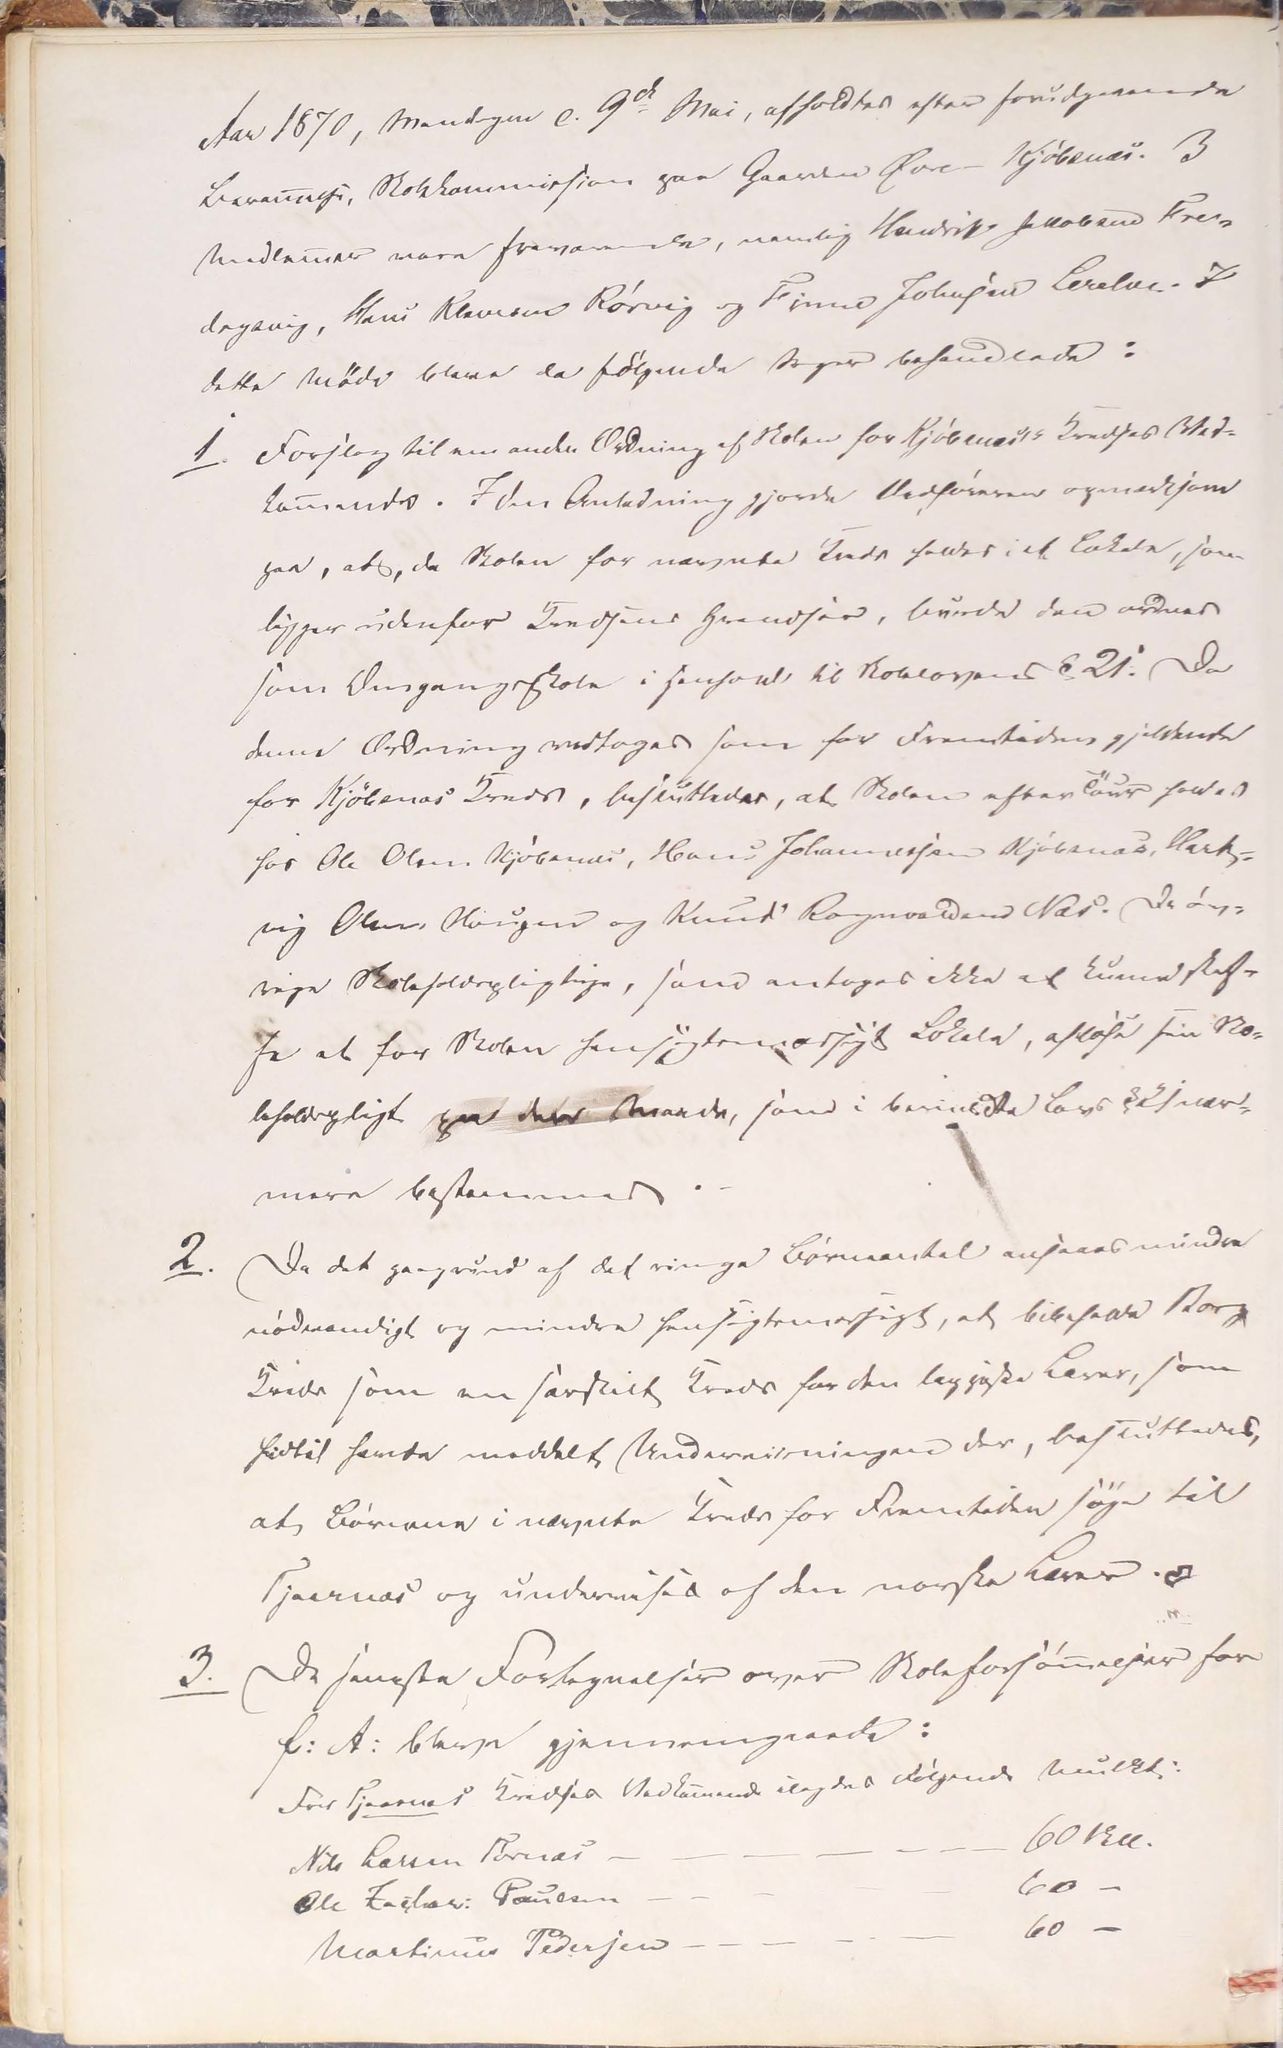 Aar 1870, Mandagen d. 9de Mai, afholdtes efter forudgaaende
Berammelse, Skolekommission paa Gaarden Øvre Kjöbsnæs. 3
Medlemmer vare fremmøde, nemlig Hendrik Jakobsen Fre-
dagsvig, Hans Klausen Rörvig og Finne Johnsen Lerelv. I
dette Möde bleve da fölgende Sager behandlede:
1. Forslag til en anden Ordning af Skolen for Kjöbsnæs Kredses Ved-
kommende. I den Anledning gjorde Ordföreren opmærksom
paa, at, da Skolen for nævnte Kreds holdes i et Lokale, som
ligger udenfor Kredsens Grændser, burde den ordnes
som Omgangsskole i Henhold til Skolelovens § 21. Da
denne Ordning vedtoges som for Fremtiden gjeldende
for Kjöbsnæs Kreds, besluttedes, at Skolen efter Tour holdes
hos Ole Olsen Kjöbsnæs, Hans Johannessen Kjöbsnæs, Hart-
vig Olsen Haugen og Knud Ragnvaldsen Næs. De öv-
rige Skoleholdspligtige, som antages ikke at kunne skaf-
fe et for Skolen hensigtsmæssigt Lokale, aflöse sin Sko-
leholdspligt paa den Maade, som i berörte Lovs § 21 nær-
mere bestemmes.
2. Da det paagrund af det ringe Börneantal ansaaes mindre
nödvendigt og mindre hensigtsmæssigt, at bibeholde Borg
Kreds som en særskilt Kreds for den lappiske Lærer, som
hidtil havde meddelt Undervisningen der, besluttedes,
at Börnene i nævnte Kreds for Fremtiden söge til
Tjærnæs og undervises af den norske Lærer.
3. De seneste Fortegnelser over Skoleforsömmelser for
f: A: bleve gjennemgaaede:
For Tjærnæs Kredses Vedkommende ilagdes Fölgende Mulkt:
Nils Larsen Pornæs — 60 Skill.
Ole Zachar: Paulsen — 60 —
Martinus Pedersen — 60 —